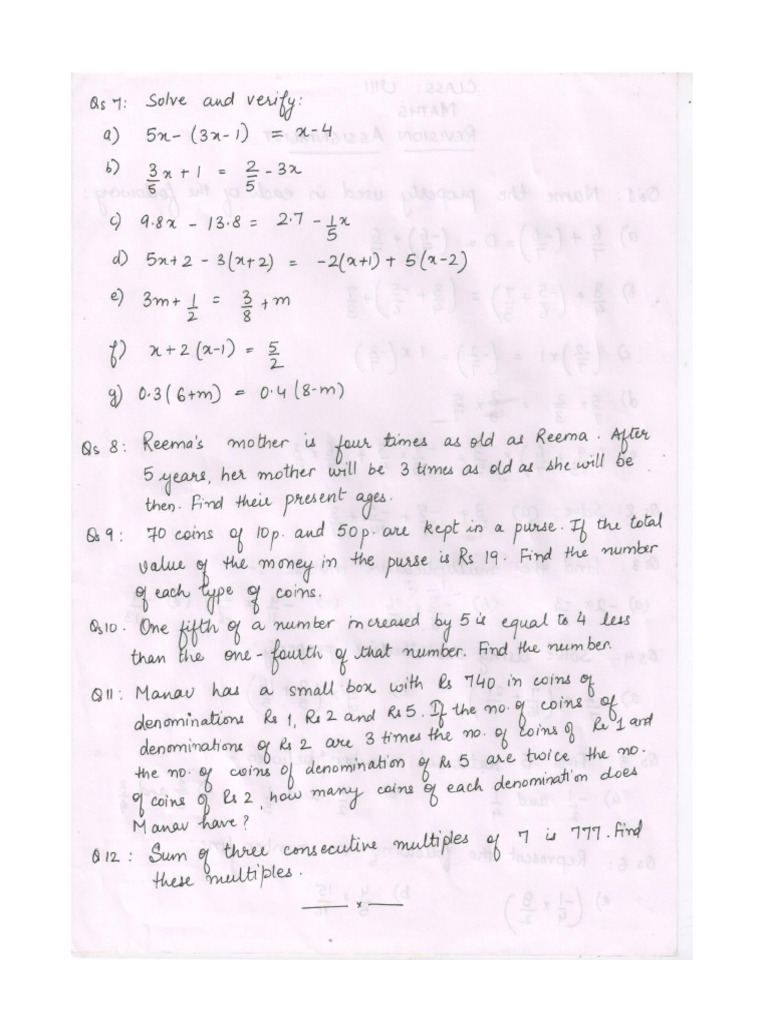 Qs 7: Solve and verify:
a) 5x - (3x-1) = x-4
b) 3/5 x + 1 = 2/5 - 3x
c) 9.8x - 13.8 = 2.7 - 1/5 x
d) 5x+2 - 3(x+2) = -2(x+1) + 5(x-2)
e) 3m + 1/2 = 3/8 + m
f) x + 2(x-1) = 5/2
g) 0.3(6+m) = 0.4(8-m)
Qs 8: Reema's mother is four times as old as Reema. After
5 years, her mother will be 3 times as old as she will be
then. Find their present ages.
Qs 9: 70 coins of 10p. and 50p. are kept in a purse. If the total
value of the money in the purse is Rs 19. Find the number
of each type of coins.
Qs10. One fifth of a number increased by 5 is equal to 4 less
than the one-fourth of that number. Find the number.
Q11: Manav has a small box with Rs 740 in coins of
denominations Rs 1, Rs 2 and Rs 5. If the no. of coins of
denominations of Rs 2 are 3 times the no. of coins of Re 1 and
the no. of coins of denomination of Rs 5 are twice the no.
of coins of Rs 2, how many coins of each denomination does
Manav have?
Q12: Sum of three consecutive multiples of 7 is 777. Find
these multiples.
x